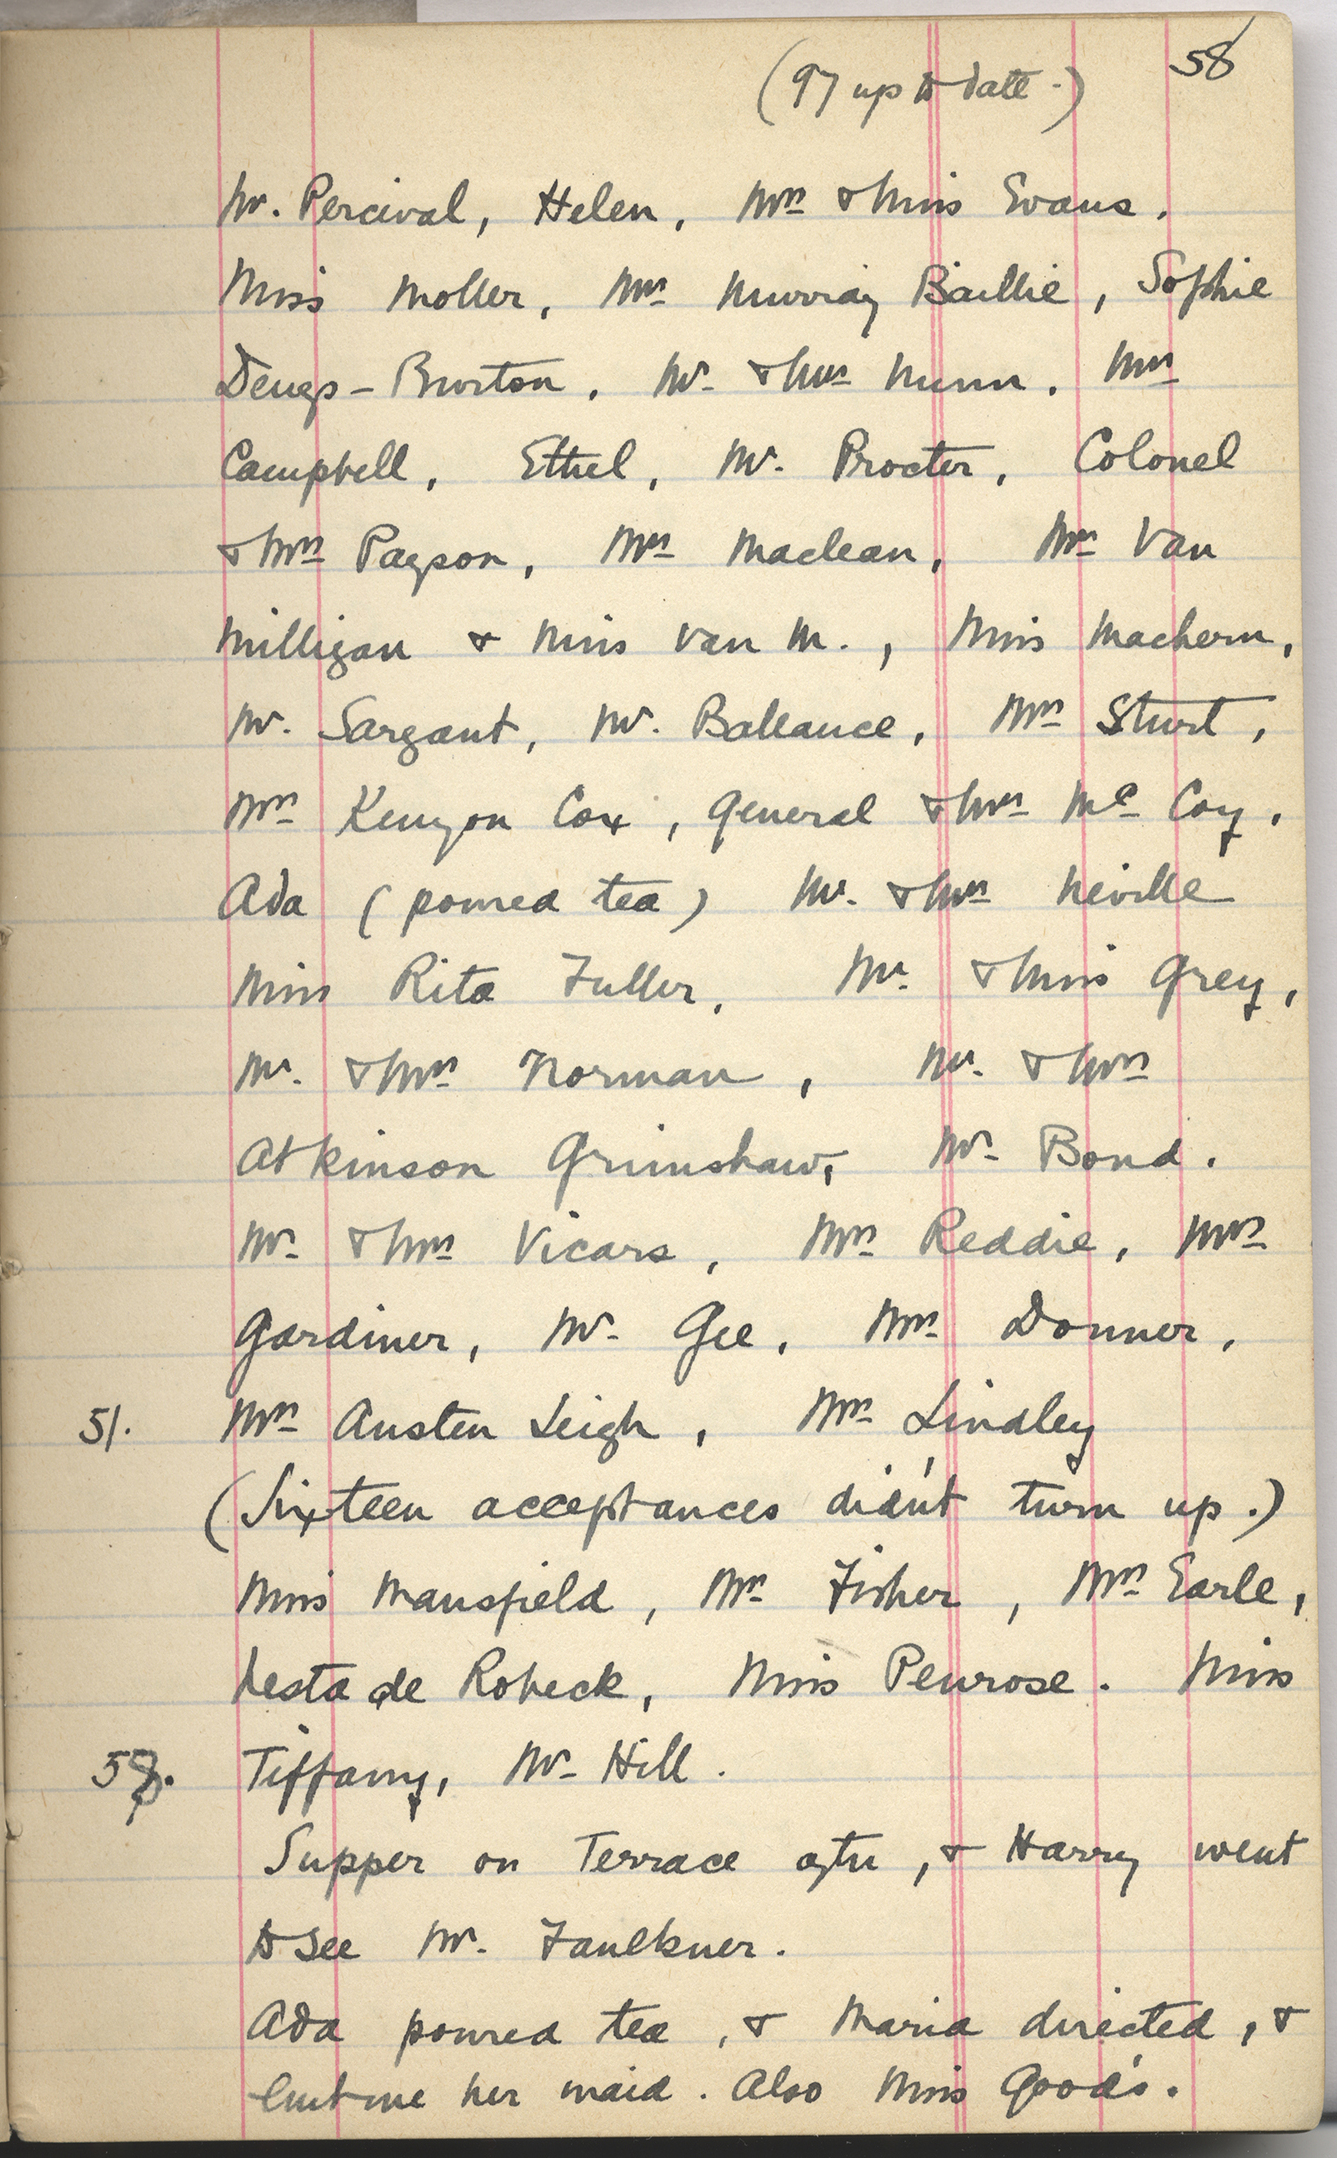 58
(97 up to date.)
Mr. Percival, Helen, Mrs & Miss Evans.
Miss Moller, Mrs Murray Baillie, Sophie
Denys-Burton. Mr. & Mrs Nunn. Mrs
Campbell, Ethel, Mr. Procter, Colonel
& Mrs Payson, Mrs Maclean, Mrs Van
Milligan & Miss Van M., Miss Machern,
Mr. Sargant, Mr. Ballance, Mrs Sturt,
Mrs Kenyon Cox, General & Mrs Mc Coy.
Ada (poured tea) Mr. & Mrs Neville
Miss Rita Fuller, Mr. & Miss Grey,
Mr. & Mrs Norman, Mr. & Mrs
Atkinson Grimshaw, Mr. Bond.
Mr. & Mrs Vicars, Mrs Reddie, Mrs
Gardiner, Mr. Gee, Mrs Donner,
51. Mrs Austen Leigh, Mrs Lindley
(Sixteen acceptances didn't turn up.)
Miss Mansfield, Mrs Fisher, Mrs Earle,
Nesta de Robeck, Miss Penrose. Miss
Tiffany, Mr. Hill.
Supper on Terrace after, & Harry went
to see Mr. Faulkner.
Ada poured tea, & Maria directed, &
lent me her maid. Also Miss Good's.